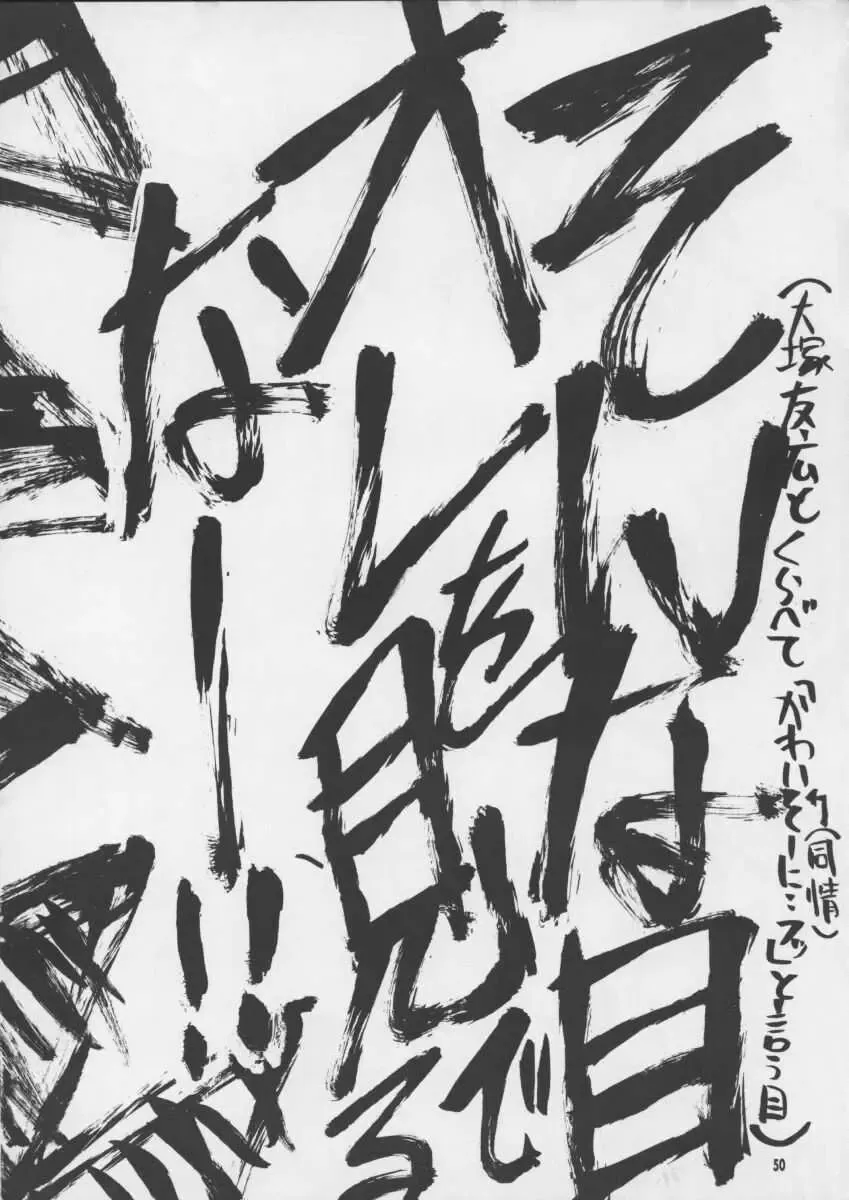 （大塚友広とくらべて「かわいそーに…」と言う目）
（同情）
そんな目で
オレを見る
なー!!
50